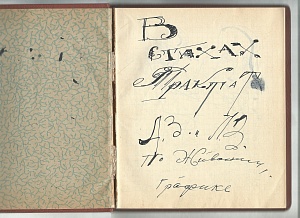 В
стахах
Трактат
по Живописи,
графике